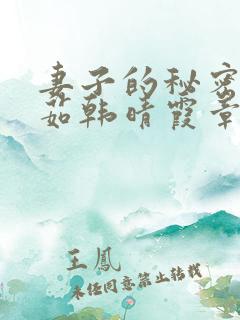 妻子的秘密
茹韩晴霞章
王鳳
未经同意禁止转载